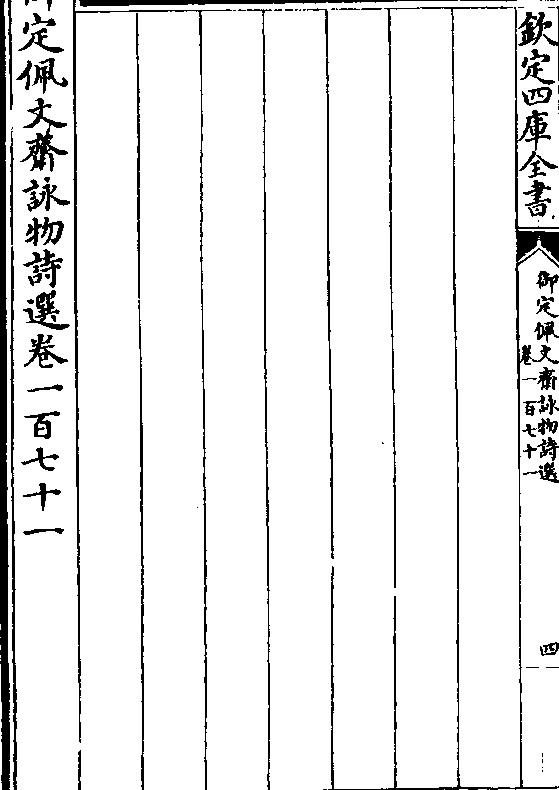 欽定四庫全書
御定佩文齋詠物詩選
卷一百七十一
四
御定佩文齋詠物詩選卷一百七十一